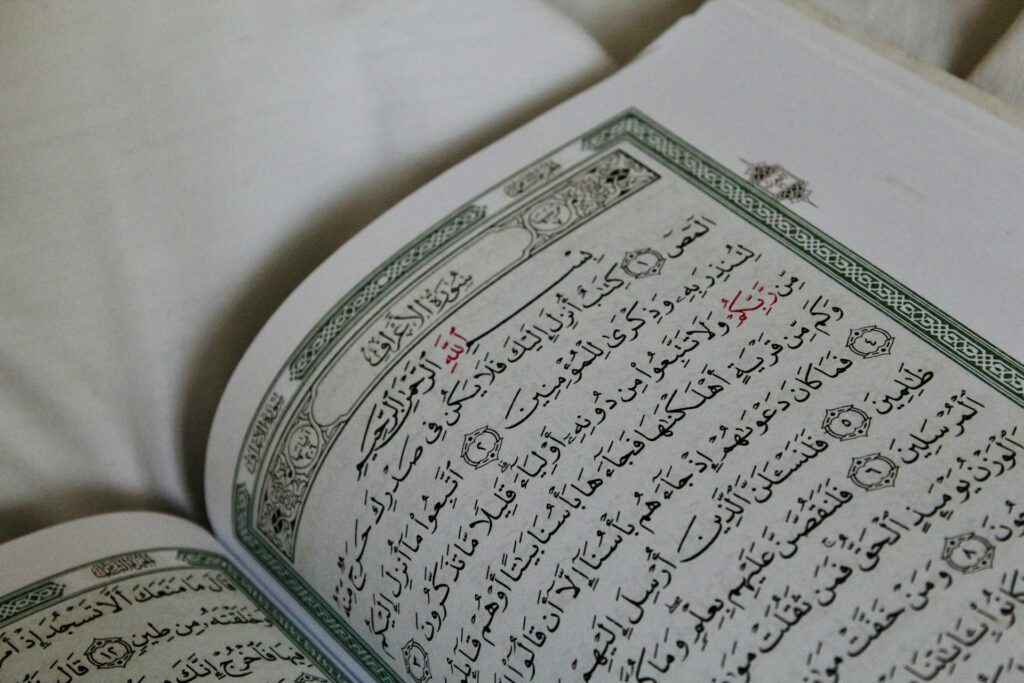 سُورَةُ الأَعْرَافِ
سُورَةُ الأَعْرَافِ
بِسْمِ ٱللَّهِ ٱلرَّحْمَٰنِ ٱلرَّحِيمِ
الٓمٓصٓ ١ كِتَٰبٌ أُنزِلَ إِلَيْكَ فَلَا يَكُن فِى صَدْرِكَ حَرَجٌ مِّنْهُ
لِتُنذِرَ بِهِۦ وَذِكْرَىٰ لِلْمُؤْمِنِينَ ٢ ٱتَّبِعُوا۟ مَآ أُنزِلَ إِلَيْكُم
مِّن رَّبِّكُمْ وَلَا تَتَّبِعُوا۟ مِن دُونِهِۦٓ أَوْلِيَآءَ ۗ قَلِيلًا مَّا تَذَكَّرُونَ ٣
وَكَم مِّن قَرْيَةٍ أَهْلَكْنَٰهَا فَجَآءَهَا بَأْسُنَا بَيَٰتًا أَوْ هُمْ قَآئِلُو
٤ فَمَا كَانَ دَعْوَىٰهُمْ إِذْ جَآءَهُم بَأْسُنَآ إِلَّآ أَن قَالُوٓا۟
ظَٰلِمِينَ ٥ فَلَنَسْـَٔلَنَّ ٱلَّذِينَ أُرْسِلَ إِلَيْهِمْ
ٱلْمُرْسَلِينَ ٦ فَلَنَقُصَّنَّ عَلَيْهِم بِعِلْمٍ ۖ وَمَا كُنَّا
ٱلْوَزْنُ يَوْمَئِذٍ ٱلْحَقُّ ۚ فَمَن ثَقُلَتْ مَوَٰ
ونَ ٨ وَمَنْ خَفَّتْ مَوَٰ
كَانُوا۟ بِـَٔايَٰتِنَا
قَالَ مَا مَنَعَكَ أَلَّا تَسْجُدَ إِذْ أَمَرْ
وَخَلَقْتَهُۥ مِن طِينٍ ١٢ قَالَ
فِيهَا فَٱخْرُجْ إِنَّكَ مِنَ